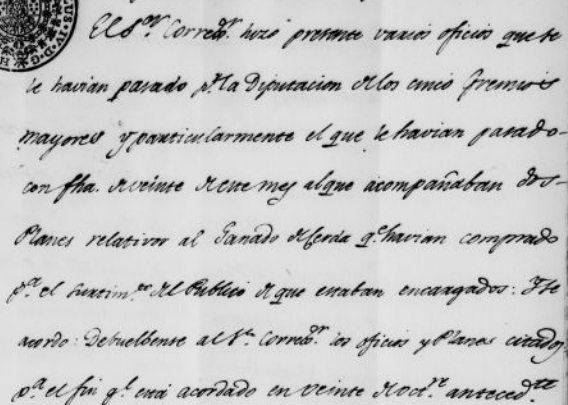 El S.or Correx.or hizo presente varios oficios que se
le havian pasado p.r la Diputacion de los cinco Gremios
mayores y particularmente el que le havian pasado
con fha. de veinte de este mes al que acompañaban dos
Planes relativos al Ganado de Cerda q.e havian comprado
p.a el surtim.to del Publico de que estaban encargados: Y se
acordo: Debuelbense al S.or Correx.or los oficios y Planes citados,
p.a el fin q.e está acordado en veinte de Oct.re anteced.te